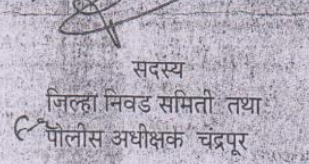 सदस्य
जिल्हा निवड समिती तथा
पोलीस अधीक्षक चंद्रपूर